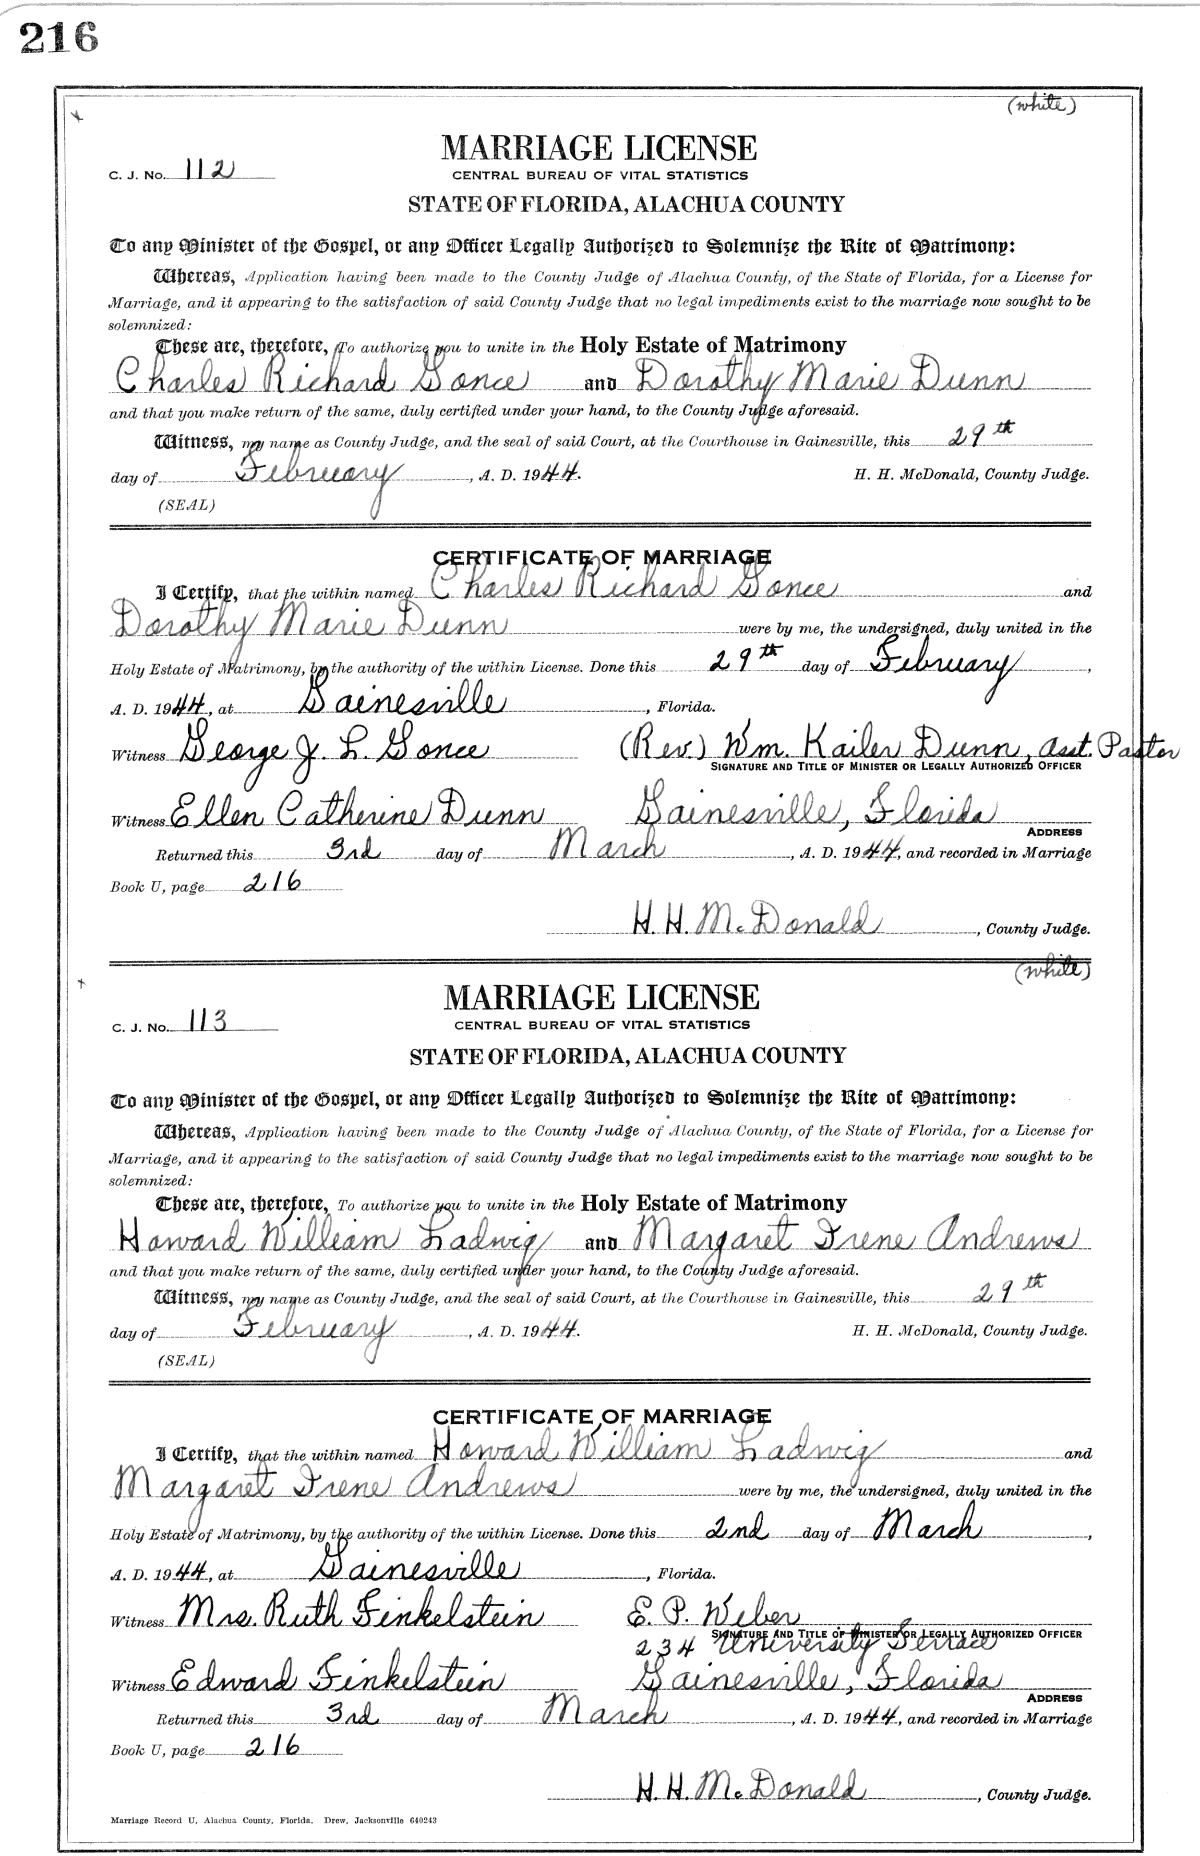 216
(white)
MARRIAGE LICENSE
C. J. No. 112
CENTRAL BUREAU OF VITAL STATISTICS
STATE OF FLORIDA, ALACHUA COUNTY
To any Minister of the Gospel, or any Officer Legally Authorized to Solemnize the Rite of Matrimony:
Whereas, Application having been made to the County Judge of Alachua County, of the State of Florida, for a License for
Marriage, and it appearing to the satisfaction of said County Judge that no legal impediments exist to the marriage now sought to be
solemnized:
These are, therefore, To authorize you to unite in the Holy Estate of Matrimony
Charles Richard Gonce and Dorothy Marie Dunn
and that you make return of the same, duly certified under your hand, to the County Judge aforesaid.
Witness, my name as County Judge, and the seal of said Court, at the Courthouse in Gainesville, this 29th
day of February, A. D. 1944. H. H. McDonald, County Judge.
(SEAL)
CERTIFICATE OF MARRIAGE
I Certify, that the within named Charles Richard Gonce and
Dorothy Marie Dunn were by me, the undersigned, duly united in the
Holy Estate of Matrimony, by the authority of the within License. Done this 29th day of February,
A. D. 1944, at Gainesville, Florida.
Witness George J. L. Gonce (Rev.) Wm. Kailer Dunn, Asst. Pastor
SIGNATURE AND TITLE OF MINISTER OR LEGALLY AUTHORIZED OFFICER
Witness Ellen Catherine Dunn Gainesville, Florida
ADDRESS
Returned this 3rd day of March, A. D. 1944, and recorded in Marriage
Book U, page 216
H. H. McDonald, County Judge.
(white)
MARRIAGE LICENSE
C. J. No. 113
CENTRAL BUREAU OF VITAL STATISTICS
STATE OF FLORIDA, ALACHUA COUNTY
To any Minister of the Gospel, or any Officer Legally Authorized to Solemnize the Rite of Matrimony:
Whereas, Application having been made to the County Judge of Alachua County, of the State of Florida, for a License for
Marriage, and it appearing to the satisfaction of said County Judge that no legal impediments exist to the marriage now sought to be
solemnized:
These are, therefore, To authorize you to unite in the Holy Estate of Matrimony
Howard William Ladwig and Margaret Irene Andrews
and that you make return of the same, duly certified under your hand, to the County Judge aforesaid.
Witness, my name as County Judge, and the seal of said Court, at the Courthouse in Gainesville, this 29th
day of February, A. D. 1944. H. H. McDonald, County Judge.
(SEAL)
CERTIFICATE OF MARRIAGE
I Certify, that the within named Howard William Ladwig and
Margaret Irene Andrews were by me, the undersigned, duly united in the
Holy Estate of Matrimony, by the authority of the within License. Done this 2nd day of March,
A. D. 1944, at Gainesville, Florida.
Witness Mrs. Ruth Finkelstein E. P. Weber
SIGNATURE AND TITLE OF MINISTER OR LEGALLY AUTHORIZED OFFICER
234 University Terrace
Witness Edward Finkelstein Gainesville, Florida
ADDRESS
Returned this 3rd day of March, A. D. 1944, and recorded in Marriage
Book U, page 216
H. H. McDonald, County Judge.
Marriage Record U, Alachua County, Florida. Drew, Jacksonville 640243